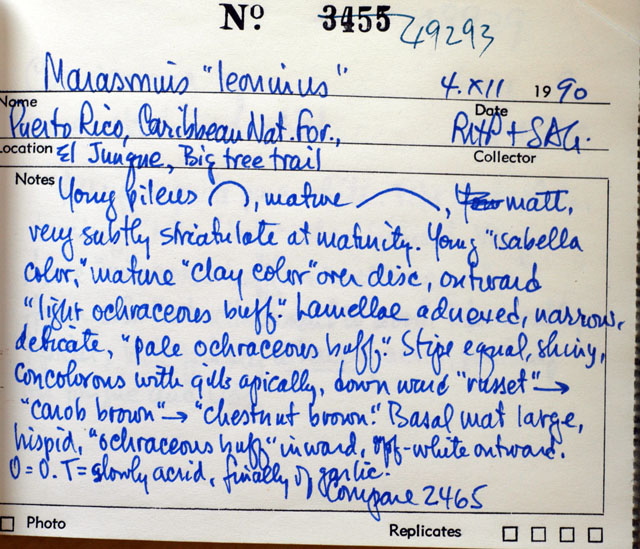 Nº 3455 49293
Marasmius "leoninus" 4.XII 1990
Name Date
Puerto Rico, Caribbean Nat. For., RHP + SAG.
Location El Junque, Big tree trail Collector
Notes Young pileus , mature , matt,
very subtly striatulate at maturity. Young "isabella
color," mature "clay color" over disc, outward
"light ochraceous buff." Lamellae adnexed, narrow,
delicate, "pale ochraceous buff." Stipe equal, shiny,
concolorous with gills apically, downward "russet" →
"carob brown" → "chestnut brown." Basal mat large,
hispid, "ochraceous buff" inward, off-white outward.
O = O. T = slowly acrid, finally of garlic.
Compare 2465
Photo Replicates